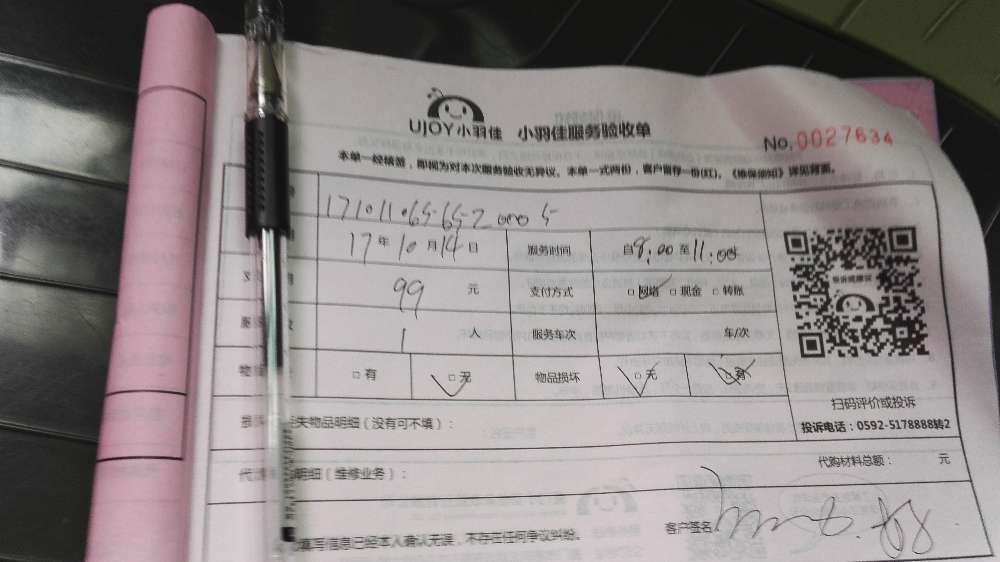 UJOY小羽佳 小羽佳服务验收单
No.0027634
本单一经核签，即视为对本次服务验收无异议。本单一式两份，客户留存一份(红)，《维保须知》详见背面。
17年10月14日 服务时间 自8:00至11:00
99元 支付方式 □网络 □现金 □转账
1人 服务车次 车/次
□有 □无 物品损坏 □无 □有
扫码评价或投诉
失物品明细（没有可不填）： 投诉电话：0592-5178888转2
明细（维修业务）： 代购材料总额： 元
填写信息已经本人确认无误，不存在任何争议纠纷。 客户签名